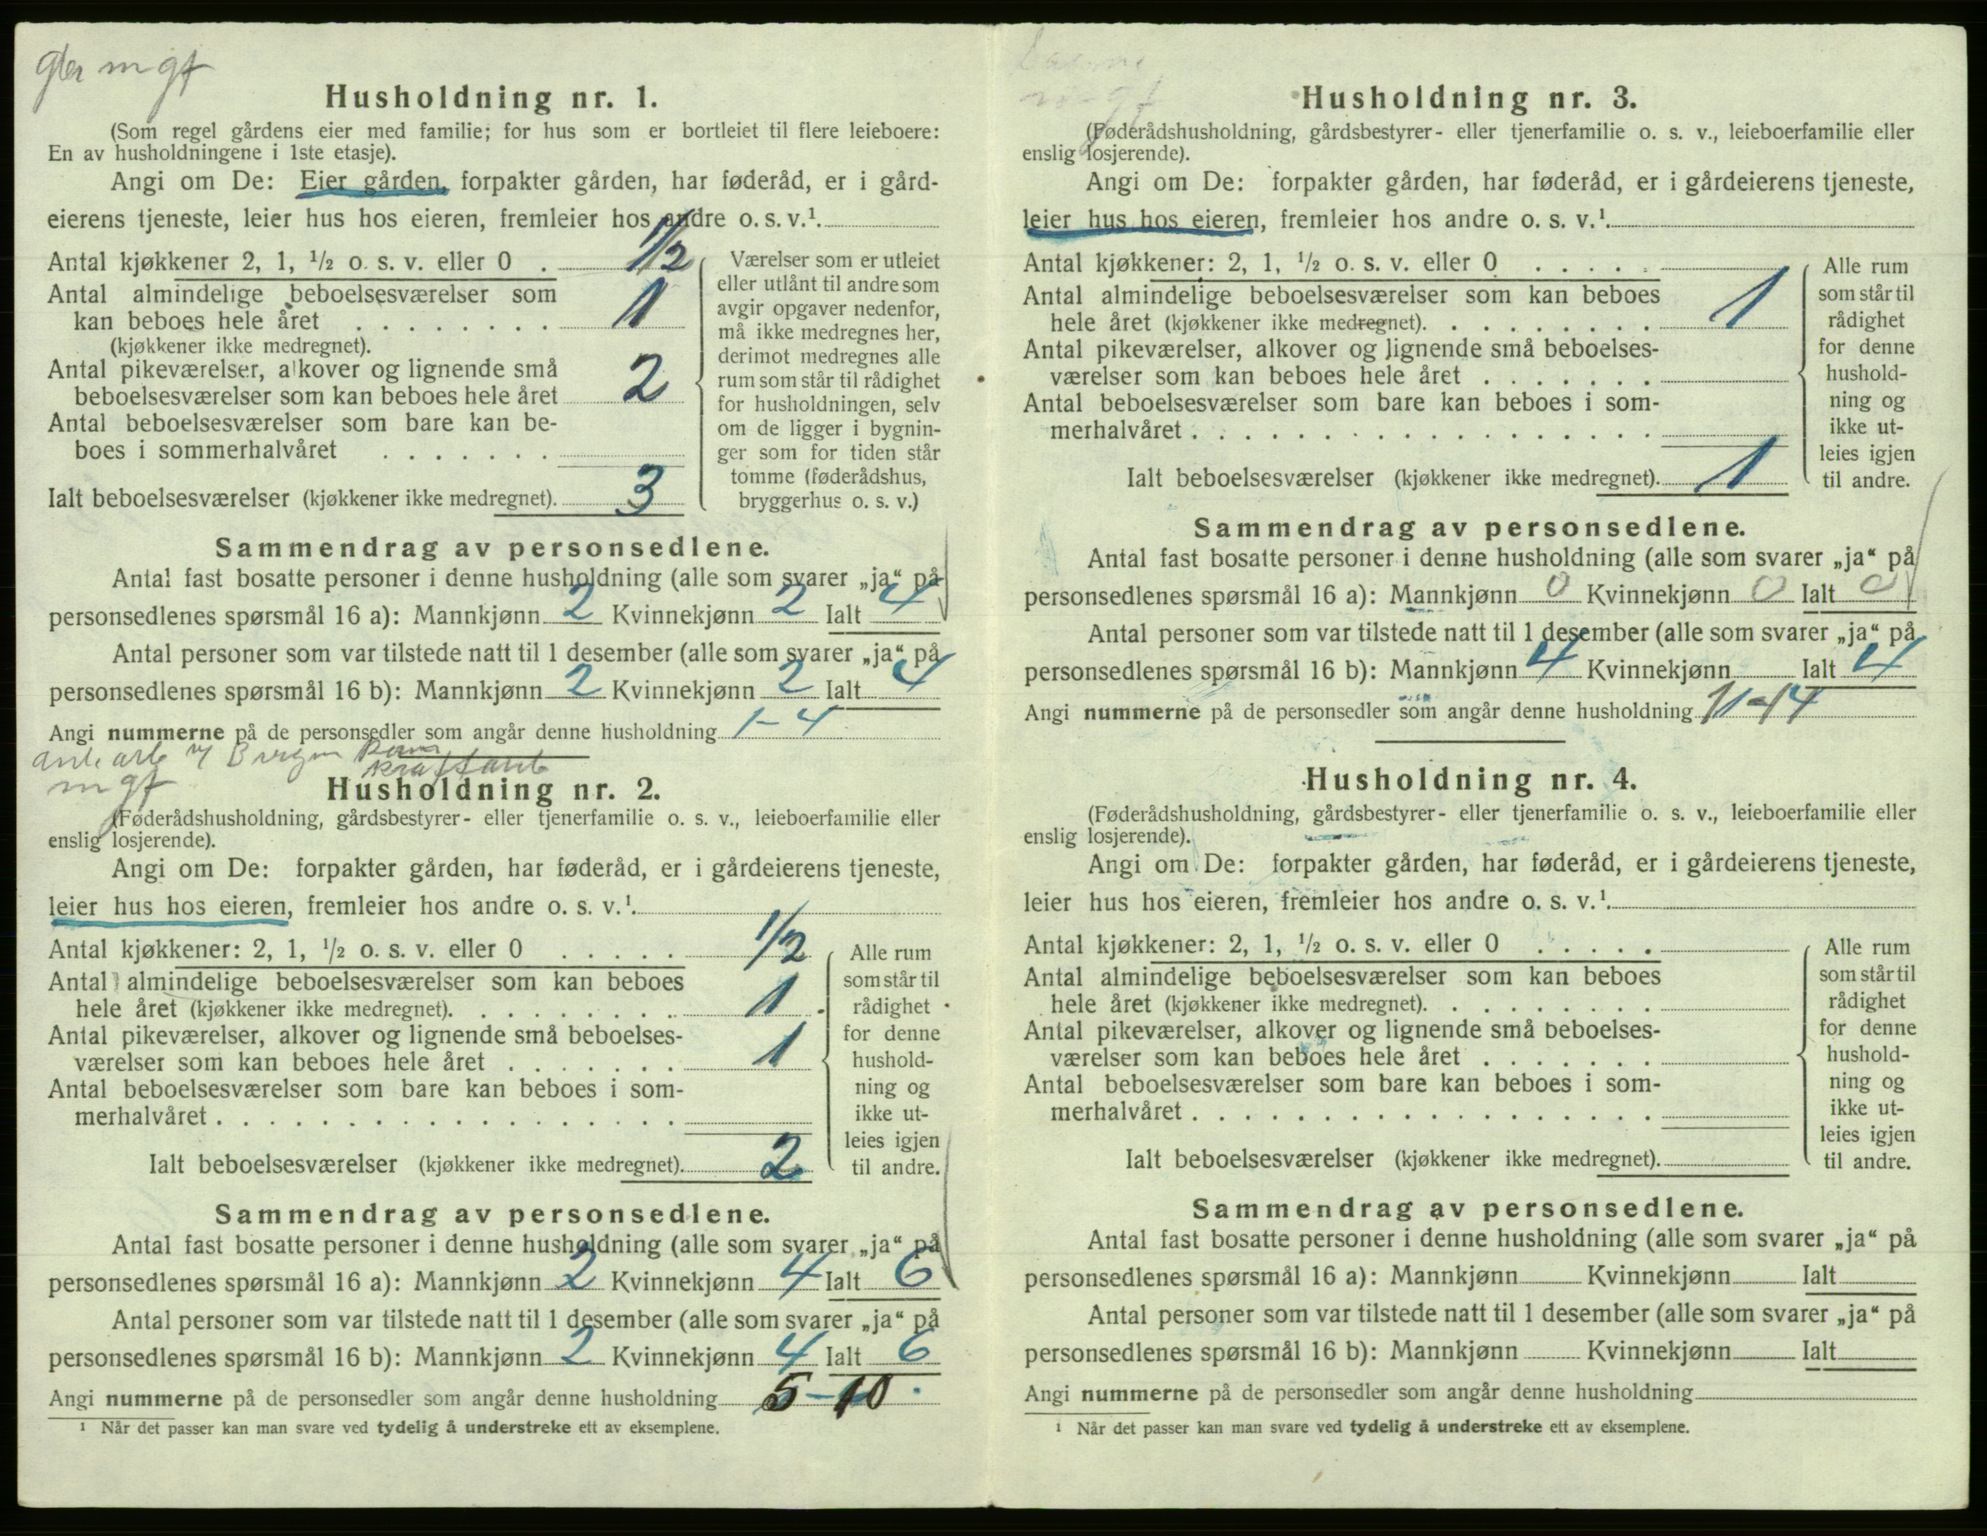 gbr m gf
Husholdning nr. 1.
(Som regel gårdens eier med familie; for hus som er bortleiet til flere leieboere:
En av husholdningene i 1ste etasje).
Angi om De: Eier gården, forpakter gården, har føderåd, er i gård-
eierens tjeneste, leier hus hos eieren, fremleier hos andre o. s. v.¹.
Antal kjøkkener 2, 1, ½ o. s. v. eller 0 . 1/2
Antal almindelige beboelsesværelser som
kan beboes hele året . . . . . . . . 1
(kjøkkener ikke medregnet).
Antal pikeværelser, alkover og lignende små
beboelsesværelser som kan beboes hele året 2
Antal beboelsesværelser som bare kan be-
boes i sommerhalvåret . . . . . . .
Ialt beboelsesværelser (kjøkkener ikke medregnet). 3
Værelser som er utleiet
eller utlånt til andre som
avgir opgaver nedenfor,
må ikke medregnes her,
derimot medregnes alle
rum som står til rådighet
for husholdningen, selv
om de ligger i bygnin-
ger som for tiden står
tomme (føderådshus,
bryggerhus o. s. v.)
Sammendrag av personsedlene.
Antal fast bosatte personer i denne husholdning (alle som svarer „ja“ på
personsedlenes spørsmål 16 a): Mannkjønn 2 Kvinnekjønn 2 Ialt 4
Antal personer som var tilstede natt til 1 desember (alle som svarer „ja“ på
personsedlenes spørsmål 16 b): Mannkjønn 2 Kvinnekjønn 2 Ialt 4
Angi nummerne på de personsedler som angår denne husholdning 1-4
arb v/ Bergen
kraftanl
m gf
Husholdning nr. 2.
(Føderådshusholdning, gårdsbestyrer- eller tjenerfamilie o. s. v., leieboerfamilie eller
enslig losjerende).
Angi om De: forpakter gården, har føderåd, er i gårdeierens tjeneste,
leier hus hos eieren, fremleier hos andre o. s. v.¹.
Antal kjøkkener: 2, 1, ½ o. s. v. eller 0 . . . . . 1/2
Antal almindelige beboelsesværelser som kan beboes
hele året (kjøkkener ikke medregnet). . . . . . . . . 1
Antal pikeværelser, alkover og lignende små beboelses-
værelser som kan beboes hele året . . . . . . . 1
Antal beboelsesværelser som bare kan beboes i som-
merhalvåret . . . . . . . . . . . . . . . . . .
Ialt beboelsesværelser (kjøkkener ikke medregnet). 2
Alle rum
som står til
rådighet
for denne
hushold-
ning og
ikke ut-
leies igjen
til andre.
Sammendrag av personsedlene.
Antal fast bosatte personer i denne husholdning (alle som svarer „ja“ på
personsedlenes spørsmål 16 a): Mannkjønn 2 Kvinnekjønn 4 Ialt 6
Antal personer som var tilstede natt til 1 desember (alle som svarer „ja“ på
personsedlenes spørsmål 16 b): Mannkjønn 2 Kvinnekjønn 4 Ialt 6
Angi nummerne på de personsedler som angår denne husholdning 5-10
¹ Når det passer kan man svare ved tydelig å understreke ett av eksemplene.
gf
Husholdning nr. 3.
(Føderådshusholdning, gårdsbestyrer- eller tjenerfamilie o. s. v., leieboerfamilie eller
enslig losjerende).
Angi om De: forpakter gården, har føderåd, er i gårdeierens tjeneste,
leier hus hos eieren, fremleier hos andre o. s. v.¹.
Antal kjøkkener: 2, 1, ½ o. s. v. eller 0 . . . . .
Antal almindelige beboelsesværelser som kan beboes
hele året (kjøkkener ikke medregnet). . . . . . . . . 1
Antal pikeværelser, alkover og lignende små beboelses-
værelser som kan beboes hele året . . . . . . .
Antal beboelsesværelser som bare kan beboes i som-
merhalvåret . . . . . . . . . . . . . . . . . .
Ialt beboelsesværelser (kjøkkener ikke medregnet). 1
Alle rum
som står til
rådighet
for denne
hushold-
ning og
ikke ut-
leies igjen
til andre.
Sammendrag av personsedlene.
Antal fast bosatte personer i denne husholdning (alle som svarer „ja“ på
personsedlenes spørsmål 16 a): Mannkjønn 0 Kvinnekjønn 0 Ialt 0
Antal personer som var tilstede natt til 1 desember (alle som svarer „ja“ på
personsedlenes spørsmål 16 b): Mannkjønn 4 Kvinnekjønn Ialt 4
Angi nummerne på de personsedler som angår denne husholdning 11-14
Husholdning nr. 4.
(Føderådshusholdning, gårdsbestyrer- eller tjenerfamilie o. s. v., leieboerfamilie eller
enslig losjerende).
Angi om De: forpakter gården, har føderåd, er i gårdeierens tjeneste,
leier hus hos eieren, fremleier hos andre o. s. v.¹.
Antal kjøkkener: 2, 1, ½ o. s. v. eller 0 . . . . .
Antal almindelige beboelsesværelser som kan beboes
hele året (kjøkkener ikke medregnet). . . . . . . . .
Antal pikeværelser, alkover og lignende små beboelses-
værelser som kan beboes hele året . . . . . . .
Antal beboelsesværelser som bare kan beboes i som-
merhalvåret . . . . . . . . . . . . . . . . . .
Ialt beboelsesværelser (kjøkkener ikke medregnet).
Alle rum
som står til
rådighet
for denne
hushold-
ning og
ikke ut-
leies igjen
til andre.
Sammendrag av personsedlene.
Antal fast bosatte personer i denne husholdning (alle som svarer „ja“ på
personsedlenes spørsmål 16 a): Mannkjønn Kvinnekjønn Ialt
Antal personer som var tilstede natt til 1 desember (alle som svarer „ja“ på
personsedlenes spørsmål 16 b): Mannkjønn Kvinnekjønn Ialt
Angi nummerne på de personsedler som angår denne husholdning
¹ Når det passer kan man svare ved tydelig å understreke ett av eksemplene.